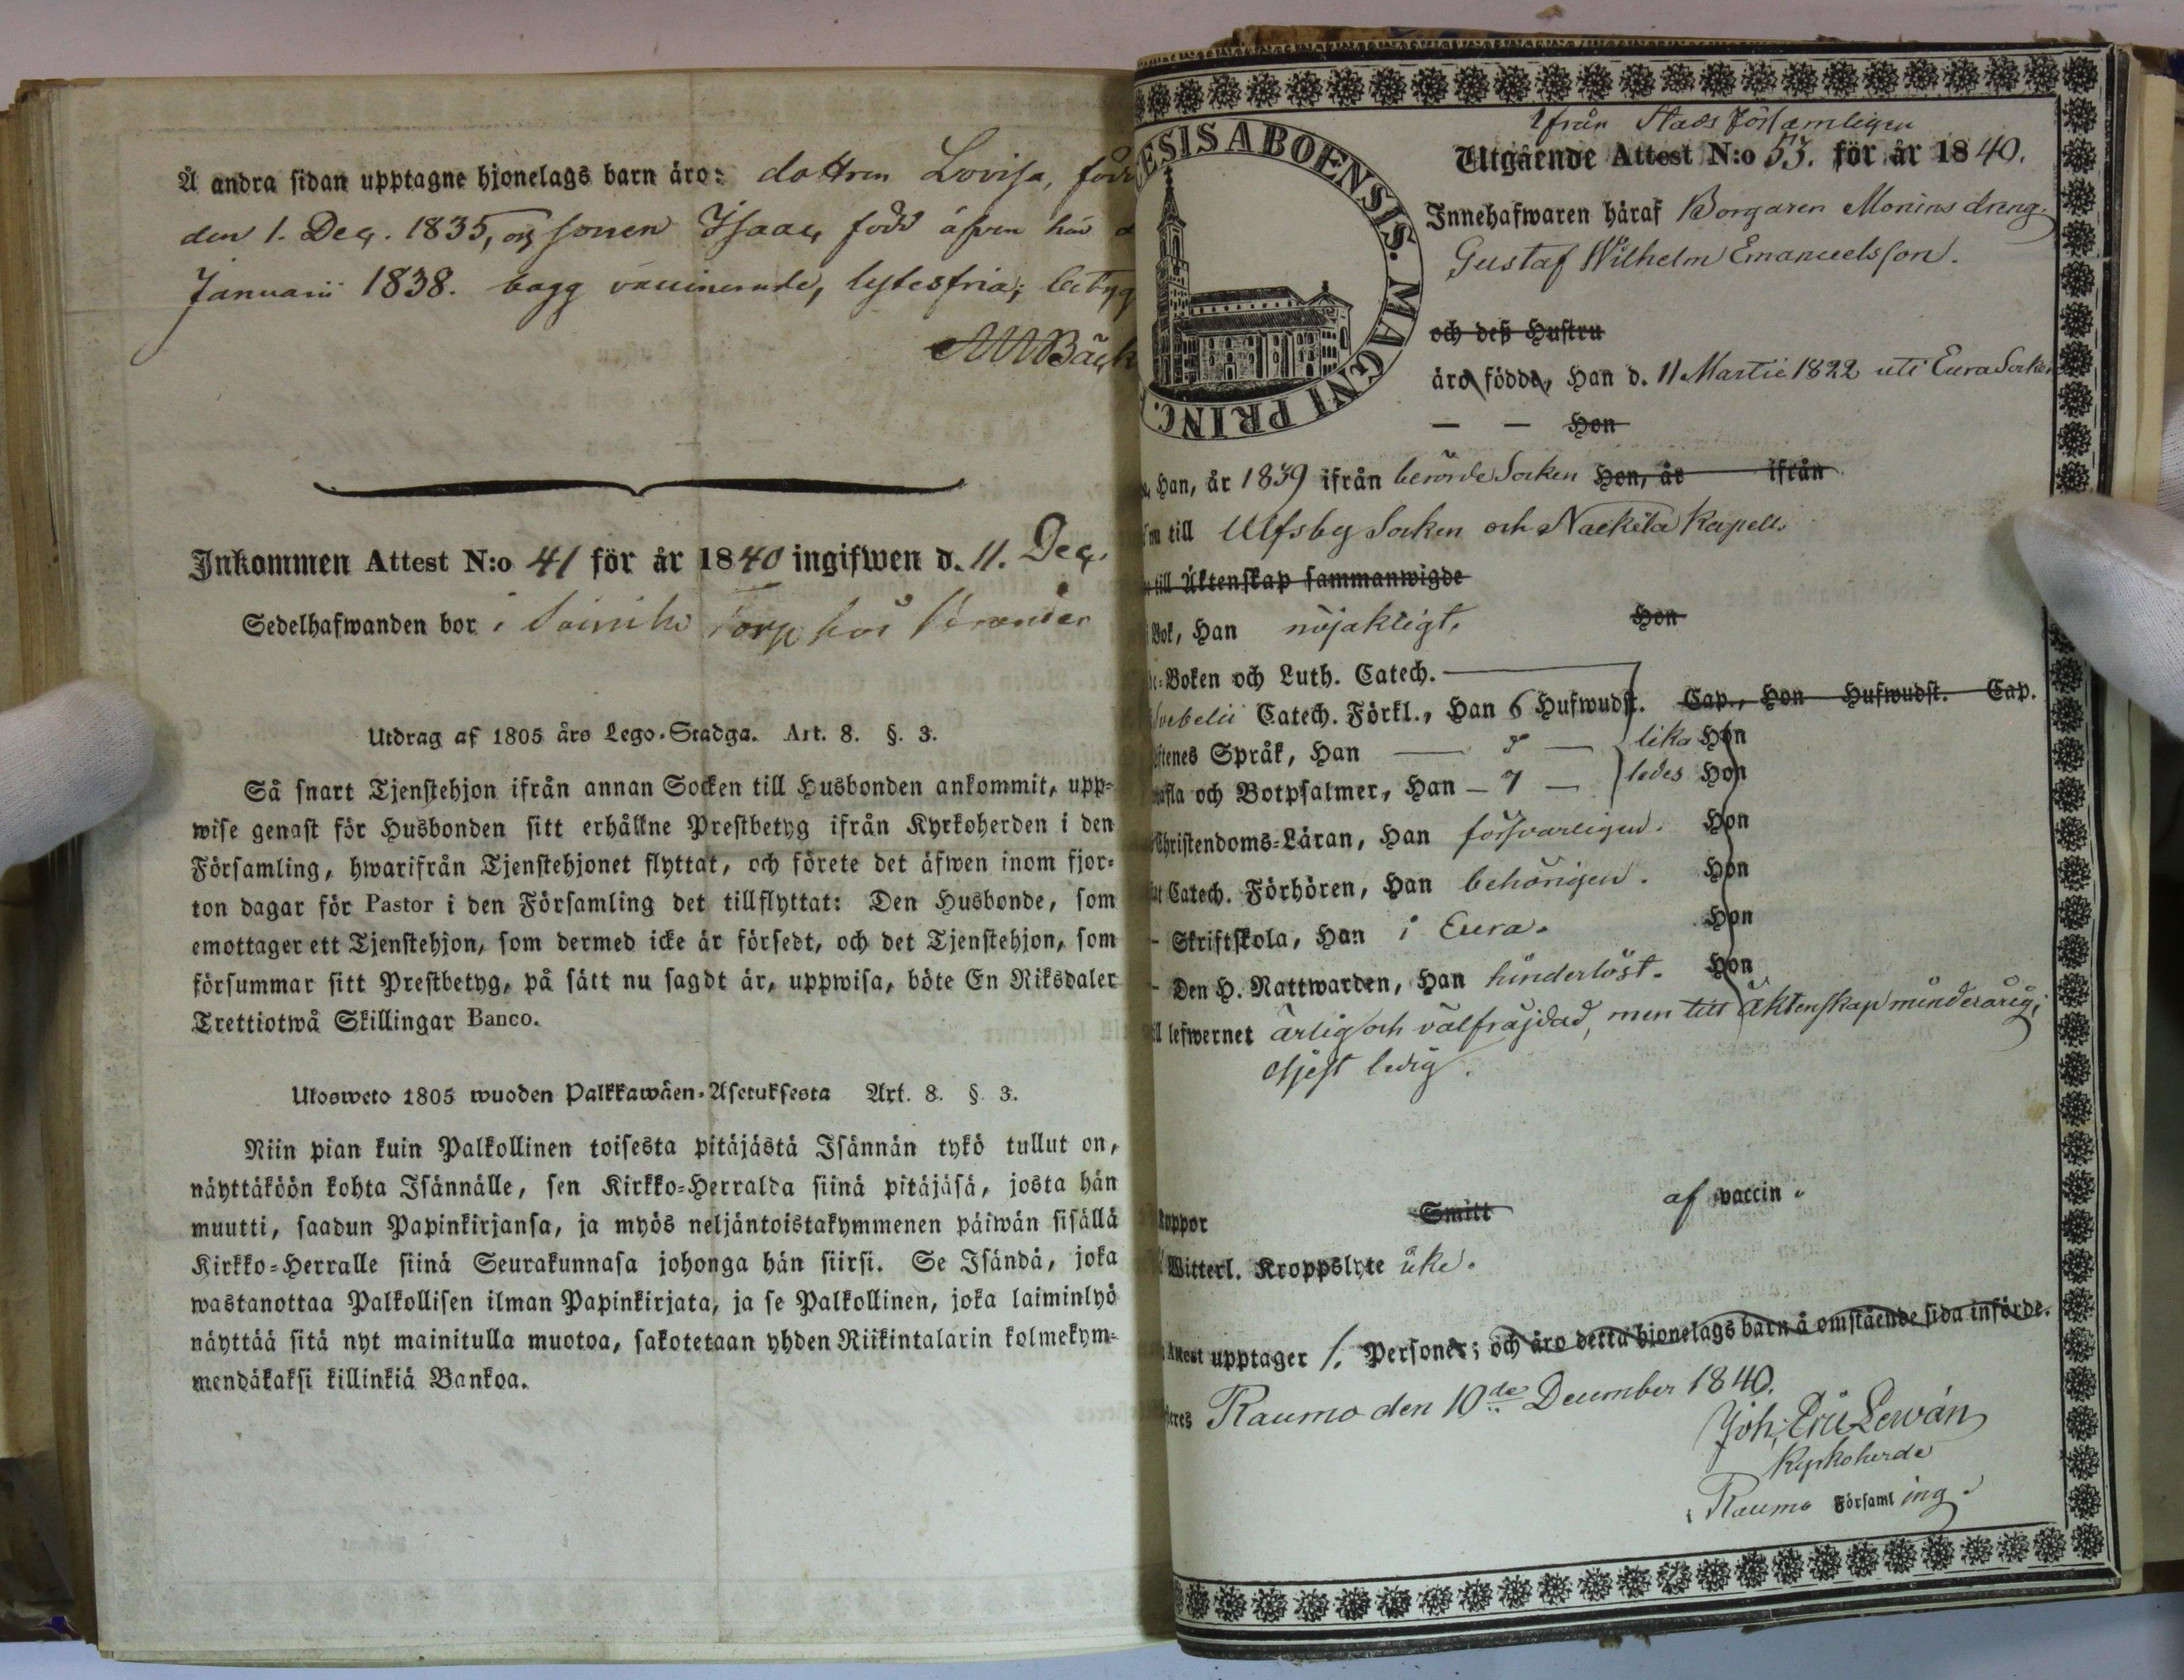 Å andra sidan upptagne hjonelags barn äro: dottren Lovisa, född
den 1. Dec. 1835, och sonen Isaac född äfven här d
Januarii 1838. bägg vaccinerade, lytesfria; betyg
Bäck
Inkommen Attest N:o 41 för år 1840 ingifwen d. 11. Dec.
Sedelhafwanden bor i torp hos
Utdrag af 1805 års Lego-Stadga. Art. 8. §. 3.
Så snart Tjenstehjon ifrån annan Socken till Husbonden ankommit, upp-
wise genast för Husbonden sitt erhållne Prestbetyg ifrån Kyrkoherden i den
Församling, hwarifrån Tjenstehjonet flyttat, och förete det äfwen inom fjor-
ton dagar för Pastor i den Församling det tillflyttat: Den Husbonde, som
emottager ett Tjenstehjon, som dermed icke är försedt, och det Tjenstehjon, som
försummar sitt Prestbetyg, på sätt nu sagdt är, uppwisa, böte En Riksdaler
Trettiotwå Skillingar Banco.
Ulosweto 1805 wuoden Palkkawäen-Asetuksesta Art. 8. § 3.
Niin pian kuin Palkollinen toisesta pitäjästä Isännän tykö tullut on,
näyttäköön kohta Isännälle, sen Kirkko-Herralda siinä pitäjäsä, josta hän
muutti, saadun Papinkirjansa, ja myös neljäntoistakymmenen päiwän sisällä
Kirkko-Herralle siinä Seurakunnasa johonga hän siirsi. Se Isändä, joka
wastanottaa Palkollisen ilman Papinkirjata, ja se Palkollinen, joka laiminlyö
näyttää sitä nyt mainitulla muotoa, sakotetaan yhden Riikintalarin kolmekym-
mendäkaksi killinkiä Bankoa.
ESIS ABOENSIS. MAGNI PRINC.
Ifrån Stads Församligen
Utgående Attest N:o 53. för år 1840.
Innehafwaren häraf Borgaren Monins dreng
Gustaf Wilhelm Emanuelsson.
och deß Hustru
äro födde, Han d. 11 Martii 1822 uti Eura Socken
— — Hon
Han, år 1839 ifrån berörde Socken Hon, år ifrån
till Ulfsby Socken och Nackila Kapell.
till Äktenskap sammanwigde
Bok, Han nöjaktigt. Hon
Boken och Luth. Catech.
Svebelii Catech. Förkl., Han 6 Hufwudst. Cap., Hon Hufwudst. Cap.
Språk, Han — 5 — lika Hon
och Botpsalmer, Han — 7 — ledes Hon
Christendoms-Läran, Han försvarligen. Hon
Catech. Förhören, Han behörigen. Hon
- Skriftskola, Han i Eura. Hon
- Den H. Nattwarden, Han hinderlöst. Hon
till lefwernet ärlig och välfräjdad, men till Äktenskap minderårig;
ledig.
koppor Smitt af vaccin.
Witterl. Kroppslyte icke.
Attest upptager 1. Personer; och äro detta hjonelags barn å omstående sida införde.
Raumo den 10de December 1840.
Joh. Eric Lewán
Kyrkoherde
i Raumo Församling.